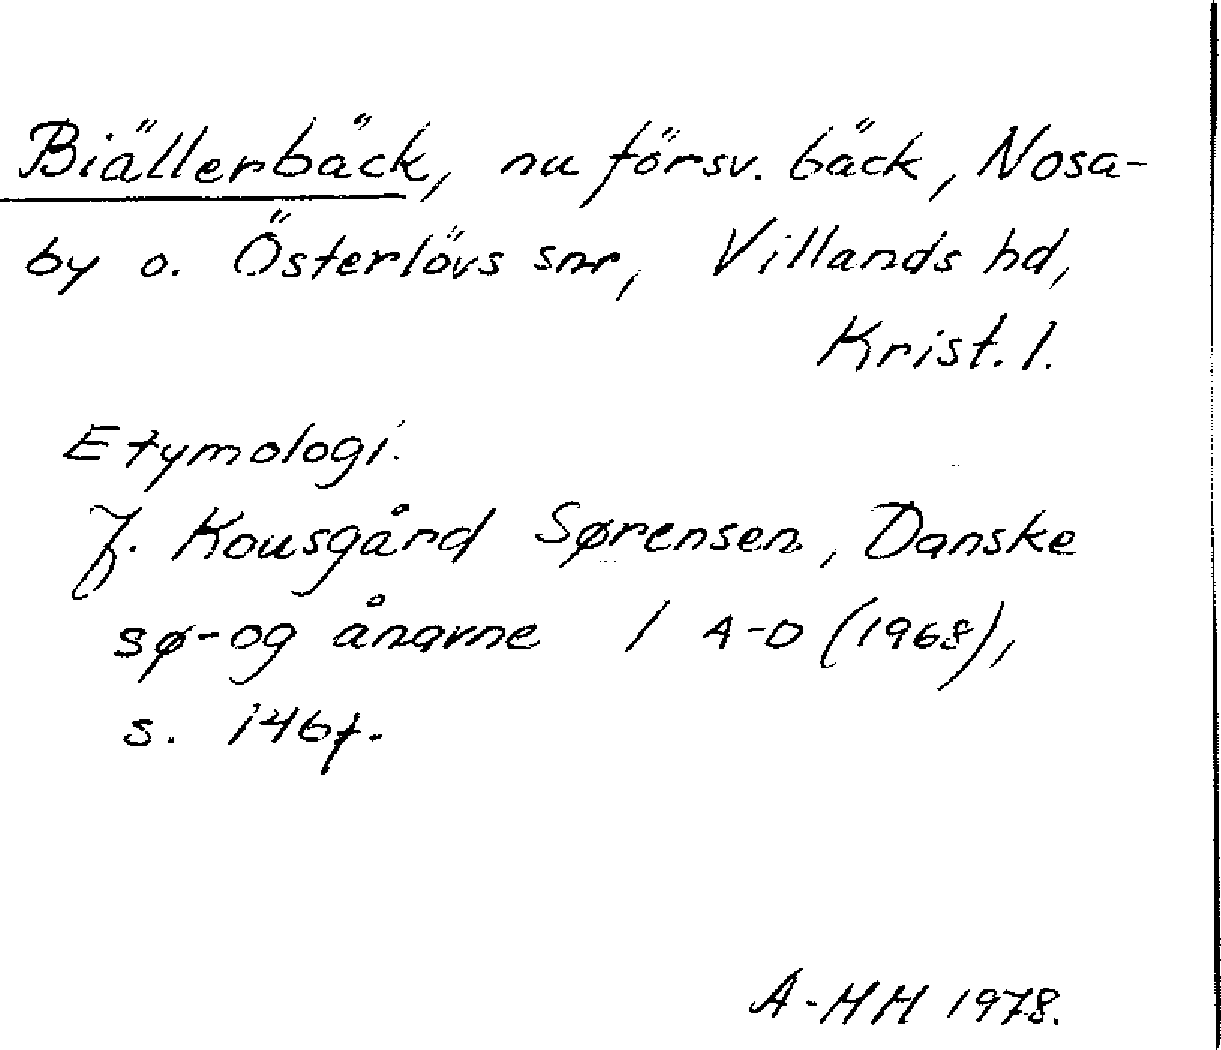 Biällerbäck, nu försv. bäck, Nosa-
by o. Österlövs snr, Villands hd,
Krist. l.
Etymologi.
J. Kousgård Sørensen, Danske
sø- og ånavne 1 A-D (1968),
s. 146f.
A-HH 1978.